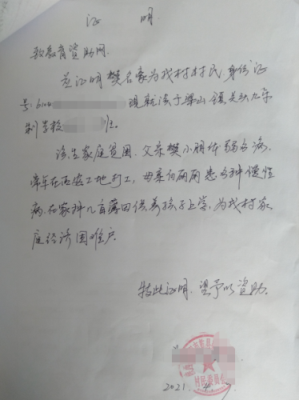 证 明
教育资助网:
兹证明樊启豪为我村村民,身份证
号:610 现就读于梁山镇关头九年
制学校 班。
该生家庭贫困,父亲樊小刚体弱多病,
常年在西安工地打工,母亲 患多种慢性
病,在家种几亩薄田供养孩子上学,为我村家
庭经济困难户。
特此证明,望予以资助。
2021